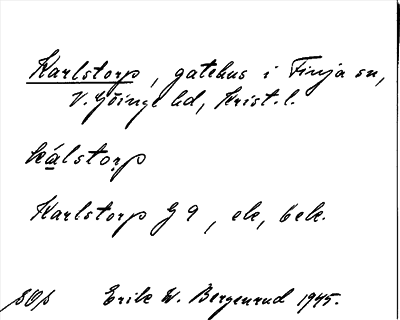 Karlstorp, gatehus i Finja sn,
V. Göinge hd, Krist. l.
kálstorp
Karlstorp G 9, ek, bek.
Erik W. Bergenrud 1945.